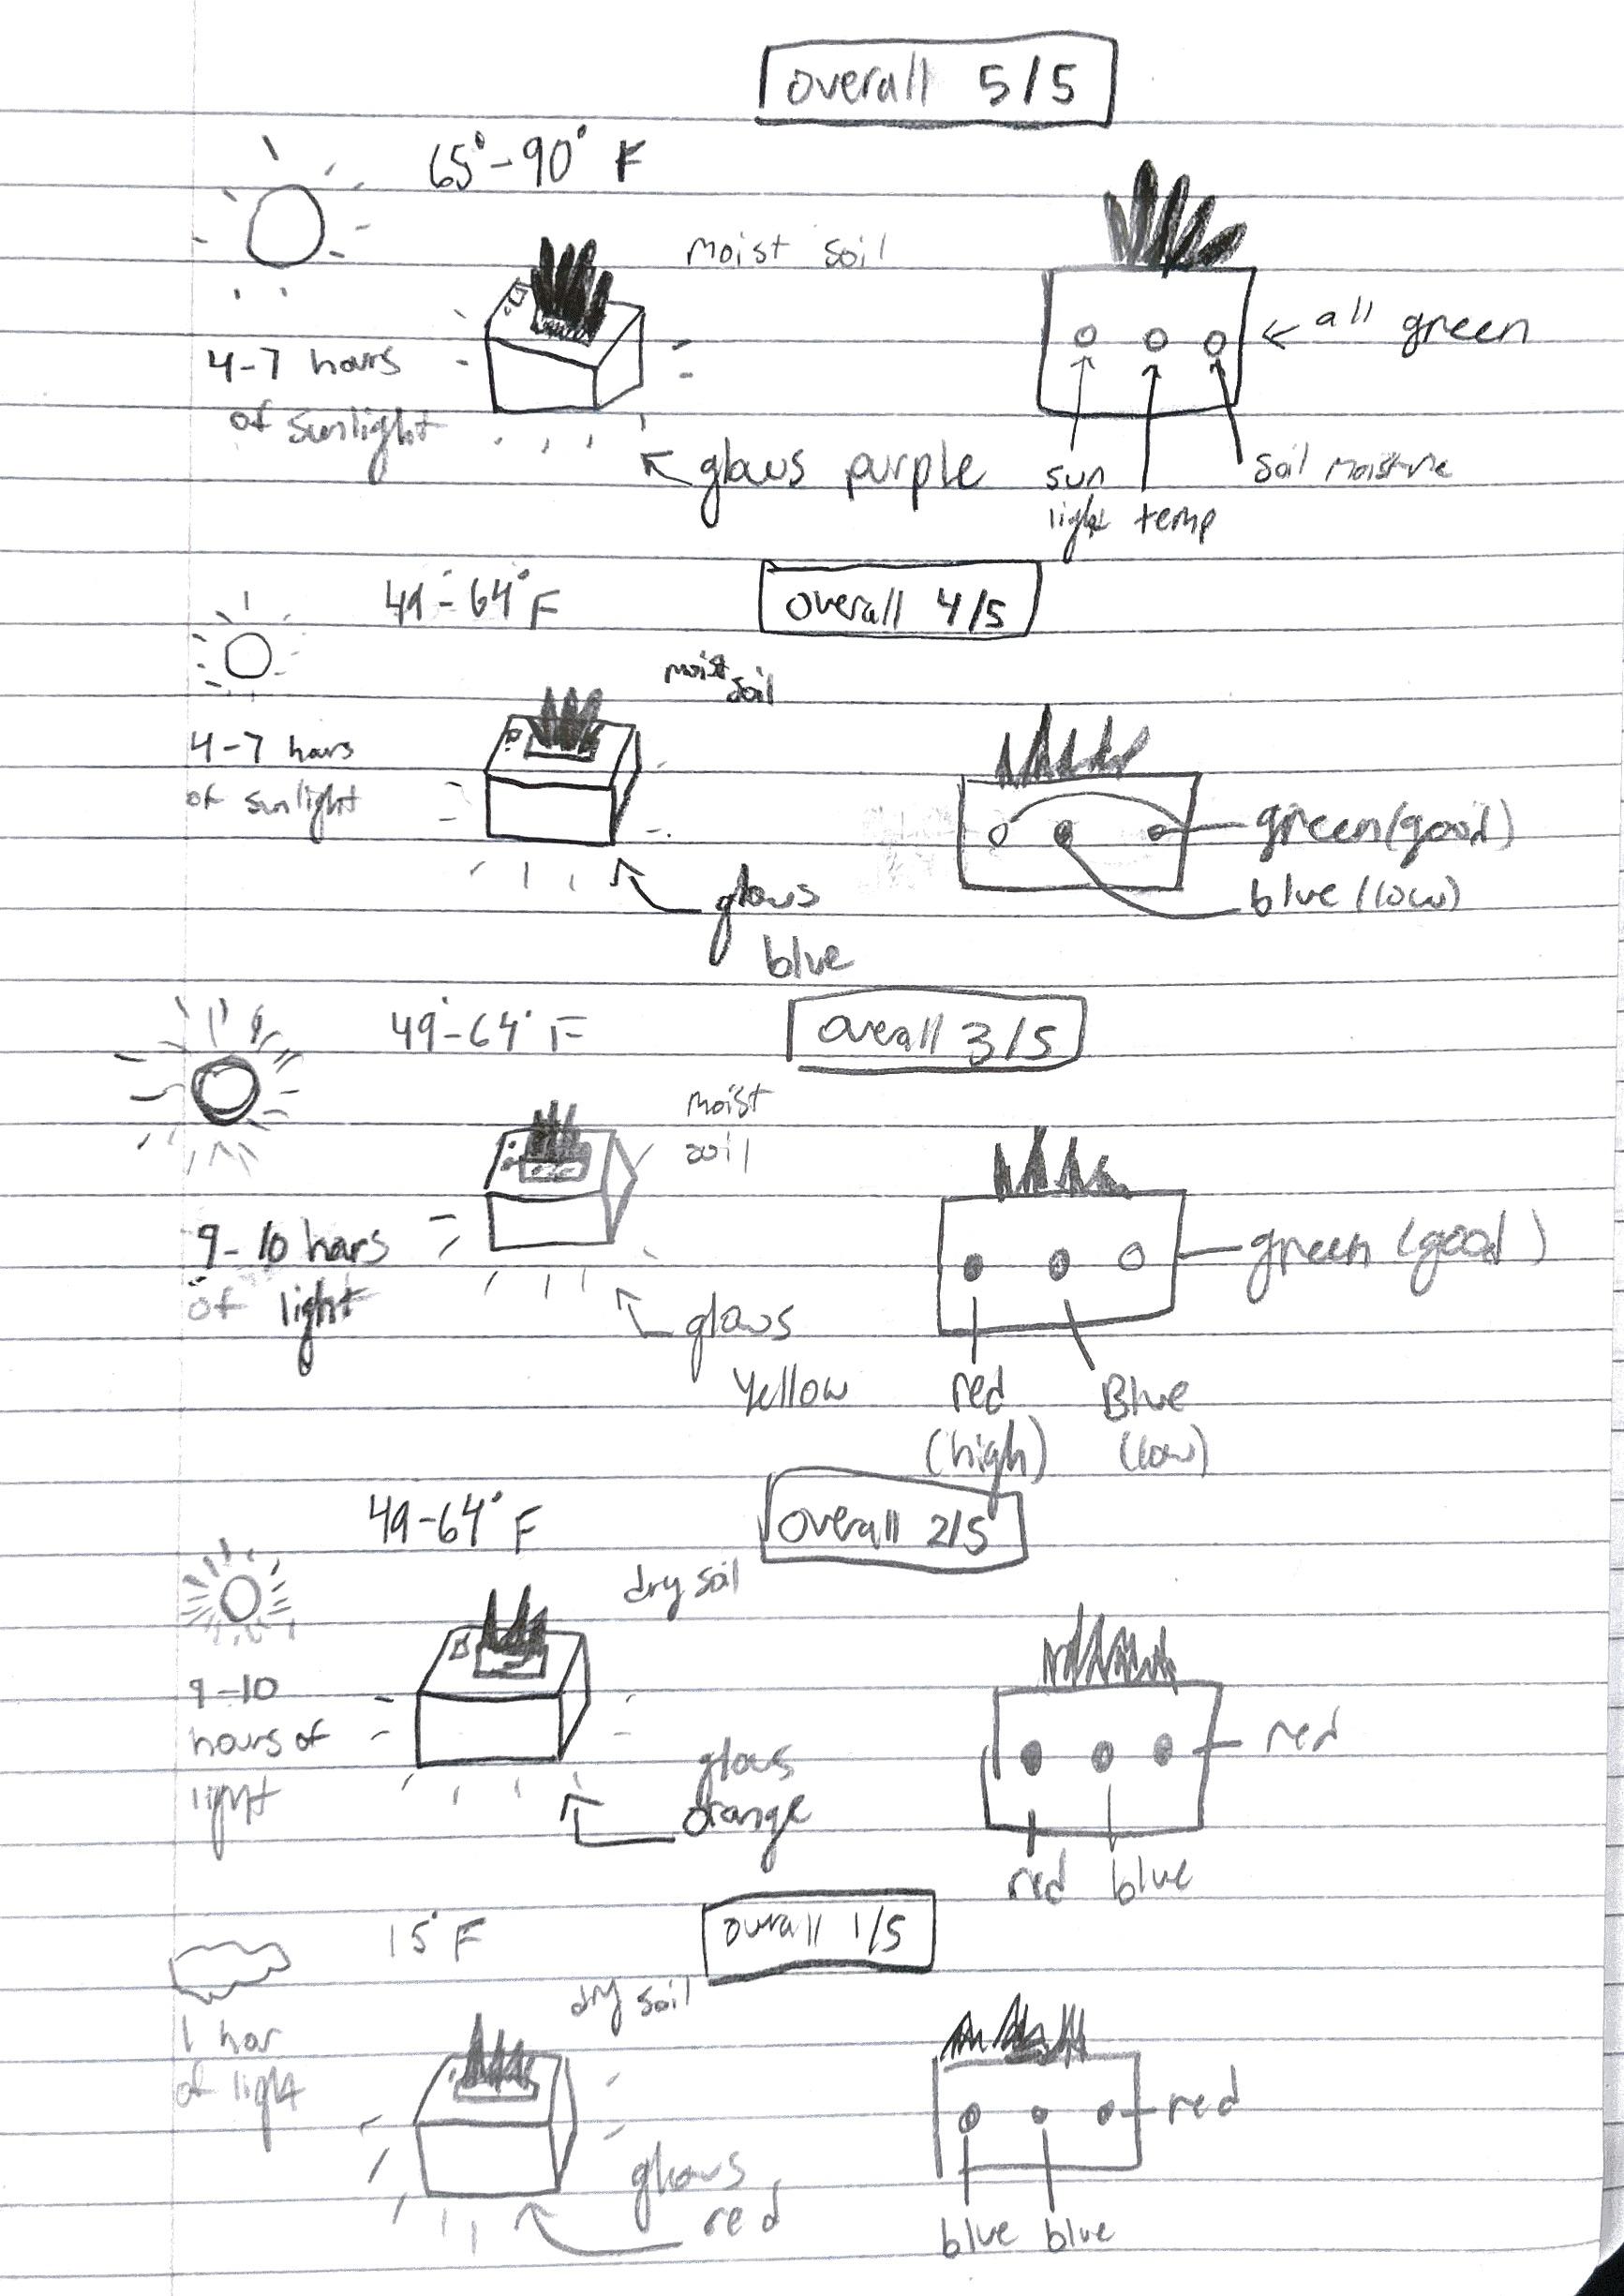 overall 5/5
65°-90° F
Moist soil
4-7 hours
of sunlight
← all green
glows purple
sun
light
temp
soil moisture
49°-64° F
overall 4/5
moist
soil
4-7 hours
of sunlight
green (good)
blue (low)
glows
blue
49°-64° F
overall 3/5
moist
soil
9-10 hours
of light
green (good)
glows
Yellow
red
(high)
Blue
(low)
49-64° F
overall 2/5
dry soil
9-10
hours of
light
red
glows
orange
red
blue
15° F
overall 1/5
dry soil
1 hour
of light
red
glows
red
blue
blue